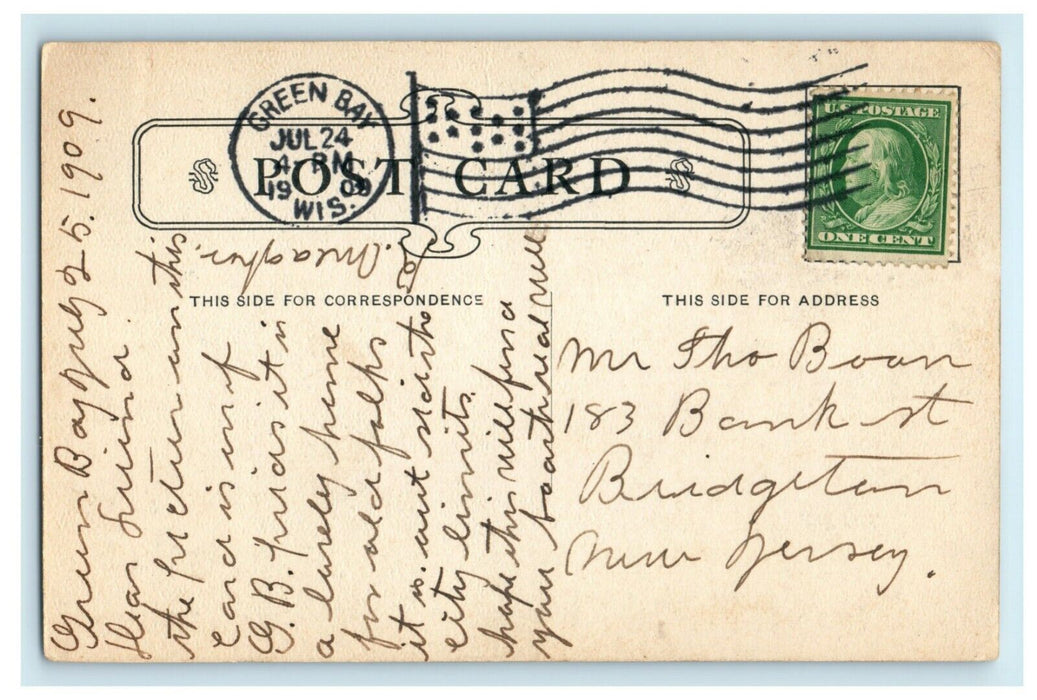 GREEN BAY
JUL 24
4 - PM
1909
WIS.
POST CARD
U.S. POSTAGE
ONE CENT
THIS SIDE FOR CORRESPONDENCE
THIS SIDE FOR ADDRESS
Green Bay July 25. 1909.
Dear Friend
the picture on this
card is one of
G. B. pride it is
a lovely home
for old folks
it is. out side the
city limits.
hope this will find
you both real well
Mr Tho Boon
183 Bank st
Bridgeton
New Jersey.